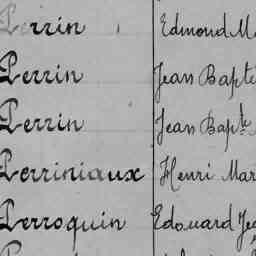 Perrin Edmond Ma
Perrin Jean Bapti
Perrin Jean Bapte
Perriniaux Henri Mar
Perroquin Edouard Jea